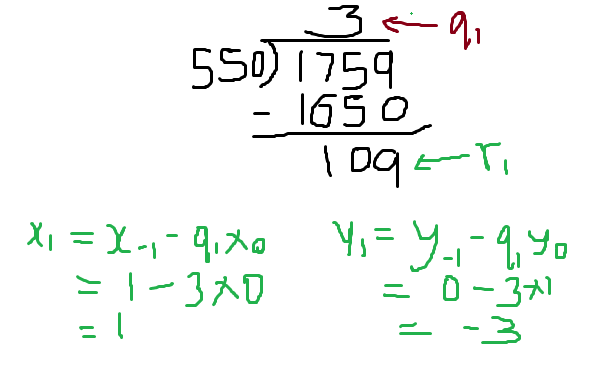 3 ← q₁
550)1759
- 1650
109 ← r₁
x₁ = x₋₁ - q₁x₀ y₁ = y₋₁ - q₁y₀
= 1 - 3×0 = 0 - 3×1
= 1 = -3